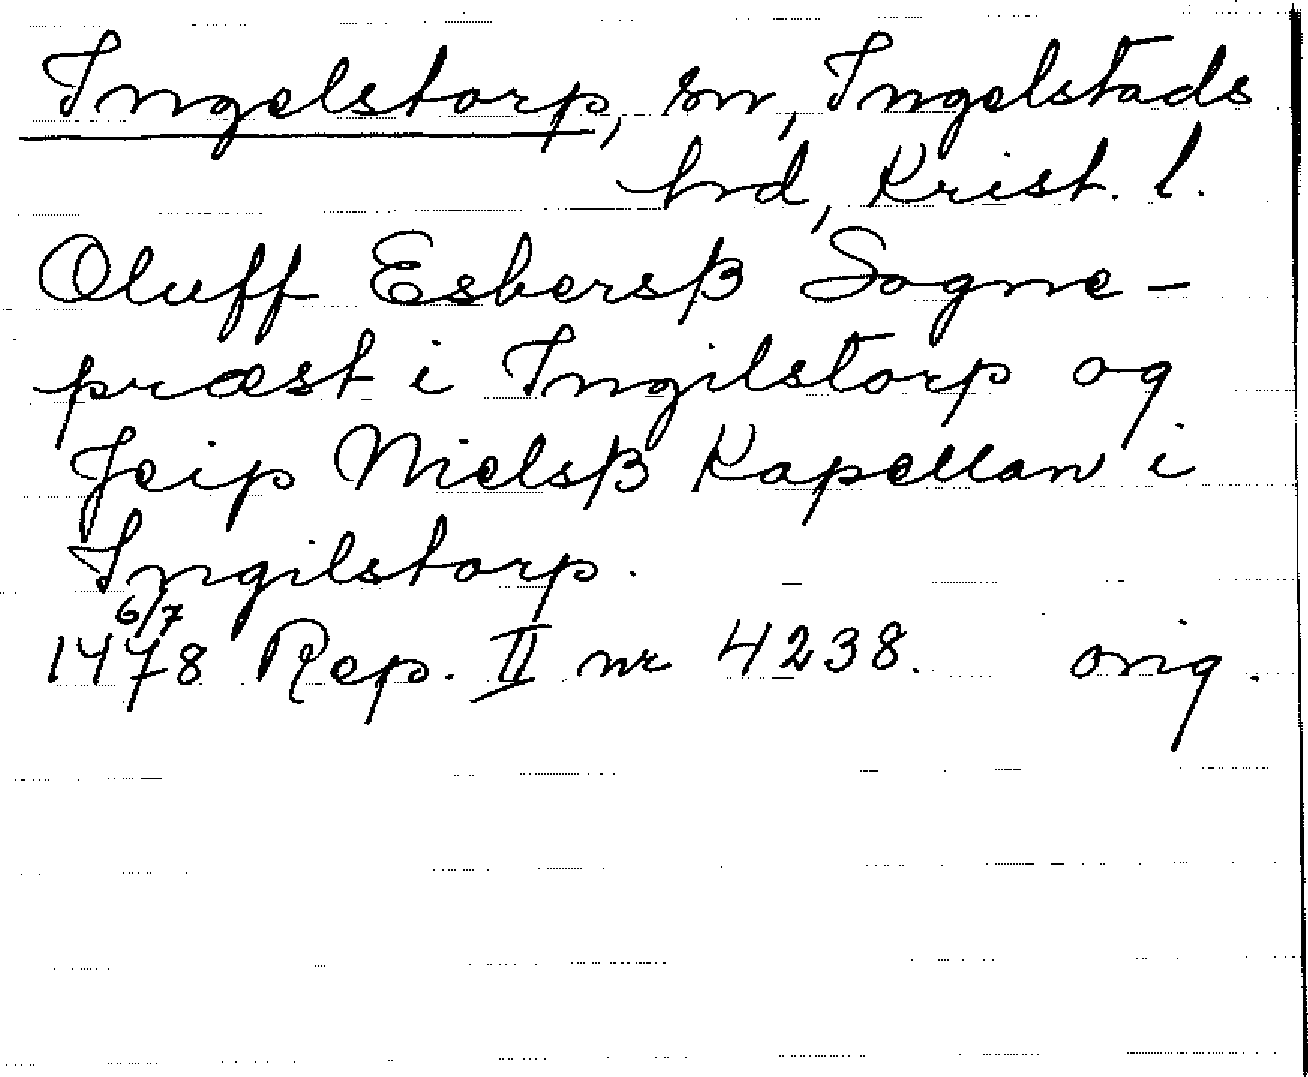 Ingelstorp, sn, Ingelstads
hrd, Krist. l.
Oluff Esbersß Sogne-
præst i Ingilstorp og
Jeip Nielsß Kapellan i
Ingilstorp.
6/7
1478 Rep. II nr 4238. orig.